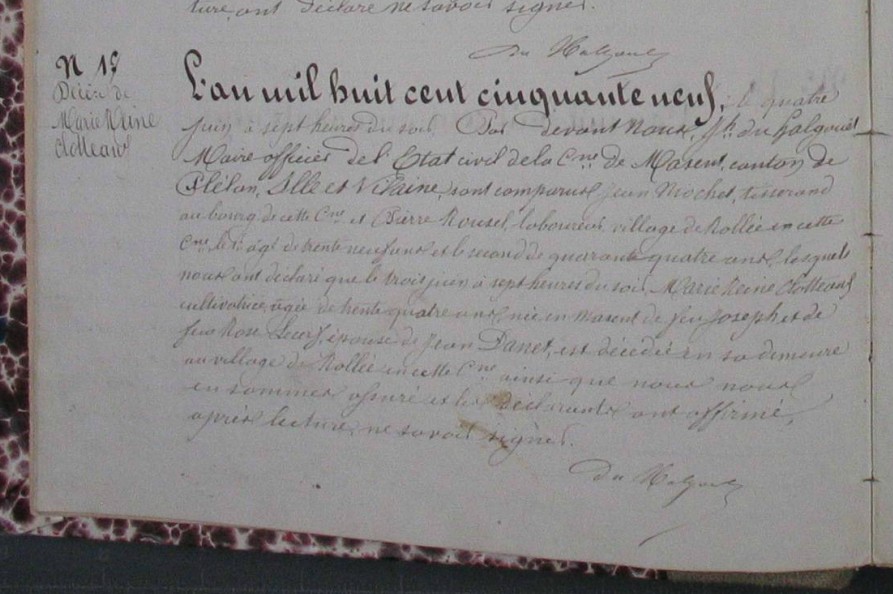 ture, ont déclaré ne savoir signer.
du Halgouet
N 19
Décès de
Marie Reine
Clotteaux
L'an mil huit cent cinquante neuf, le quatre
juin à sept heures du soir, Par devant nous, Jh. du Halgouët
Maire officier de l'Etat civil de la Cne de Maxent, canton de
Plélan, Ille et Vilaine, sont comparus Jean Nochet, tisserand
au bourg de cette Cne et Pierre Rousel, laboureur, village de Rollée en cette
Cne, le 1er âgé de trente neuf ans et le second de quarante quatre ans, lesquels
nous ont déclaré que le trois juin à sept heures du soir, Marie Reine Clotteaux
cultivatrice, âgée de trente quatre ans, née en Maxent de feu Joseph et de
feue Rose épouse de Jean Danet, est décédée en sa demeure
au village de Rollée en cette Cne ainsi que nous nous
en sommes assuré et les déclarants ont affirmé,
après lecture, ne savoir signer.
du Halgouet